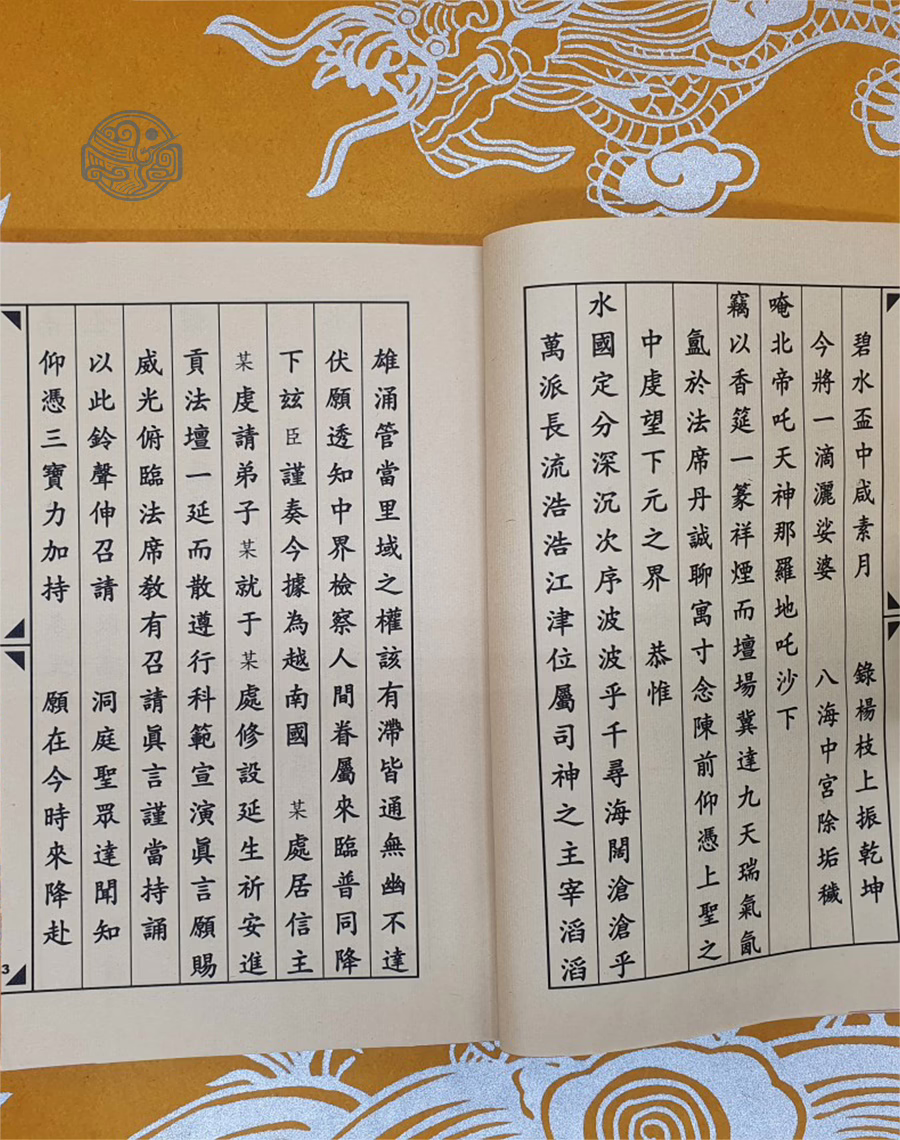 碧水盃中咸素月 錄楊枝上振乾坤
今將一滴灑娑婆 八海中宮除垢穢
唵北帝吒天神那羅地吒沙下
竊以香筵一篆祥煙而壇場冀達九天瑞氣氤
氳於法席丹誠聊寓寸念陳前仰憑上聖之
中虔望下元之界 恭惟
水國定分深沉次序波波乎千尋海闊滄滄乎
萬派長流浩浩江津位屬司神之主宰滔滔
雄涌管當里域之權該有滯皆通無幽不達
伏願透知中界檢察人間眷屬來臨普同降
下玆臣謹奏今據為越南國 某處居信主
某虔請弟子某就于某處修設延生祈安進
貢法壇一延而散遵行科範宣演眞言願賜
威光俯臨法席教有召請眞言謹當持誦
以此鈴聲伸召請 洞庭聖眾達聞知
仰憑三寶力加持 願在今時來降赴
3